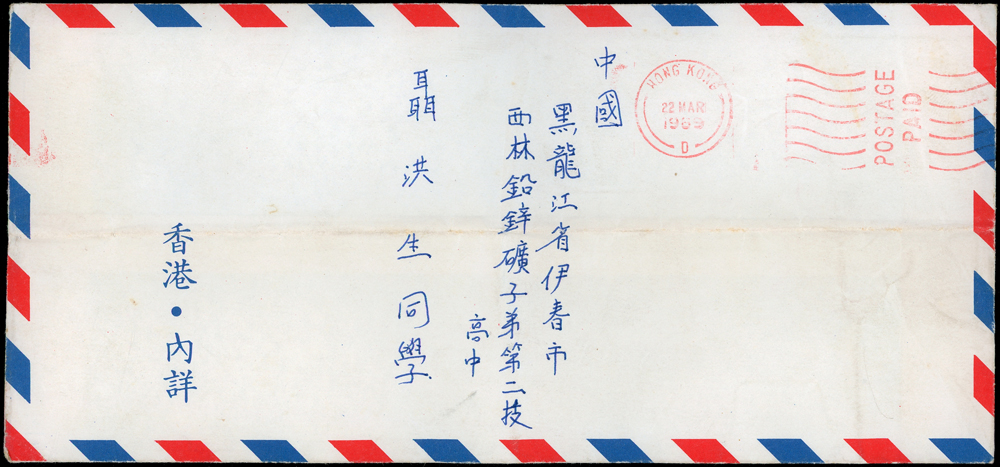 HONG KONG
22 MAR
1989
D
POSTAGE
PAID
中國
黑龍江省伊春市
西林鉛鋅礦子弟第二技
高中
聶洪生同學
香港·內詳